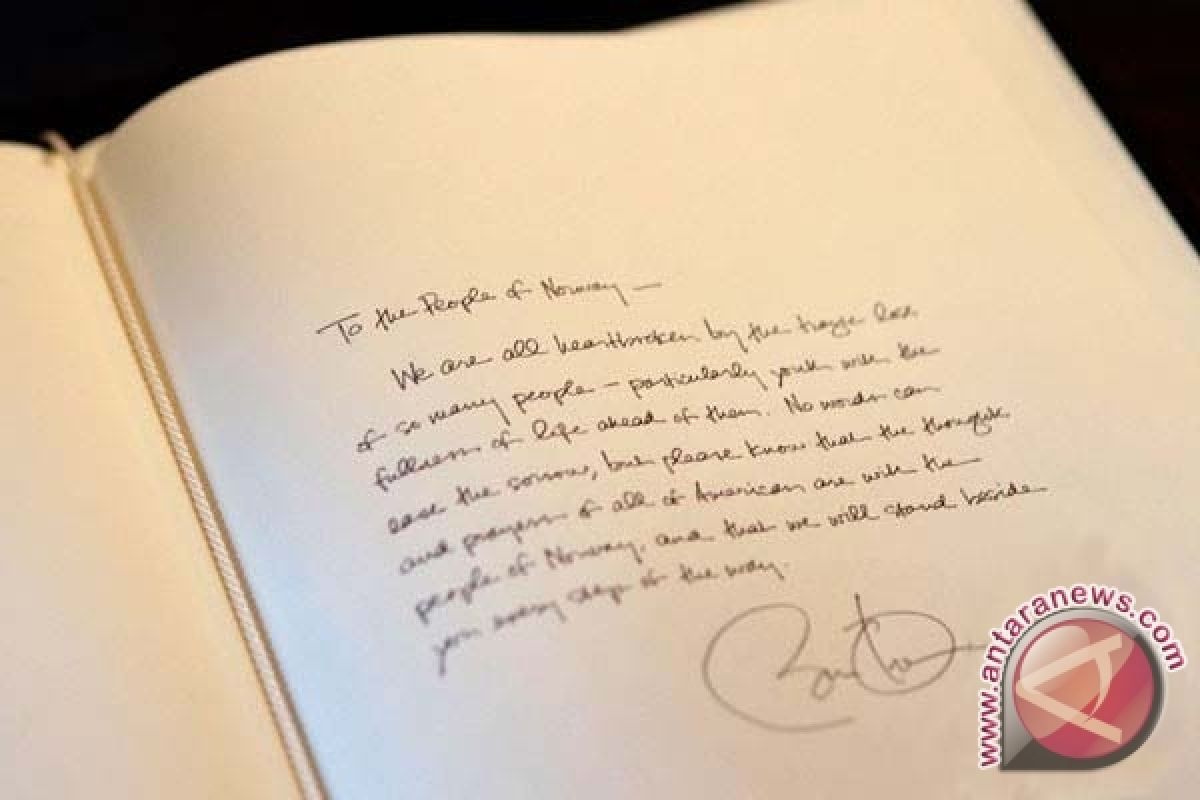 To the People of Norway —
We are all heartbroken by the tragic loss
of so many people – particularly youth with the
fullness of life ahead of them. No words can
ease the sorrow, but please know that the thoughts
and prayers of all of American are with the
people of Norway, and that we will stand beside
you every step of the way.
www.antaranews.com